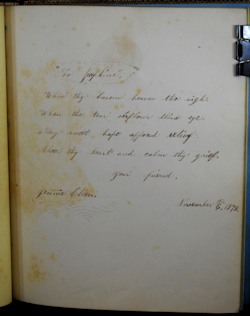 To Josephine.
When thy bosom heaves the sigh
When the tear o'erflows thine eye
May sweet hope afford relief
Cheer thy heart and calm thy grief.
Your friend.
November 6, 1872